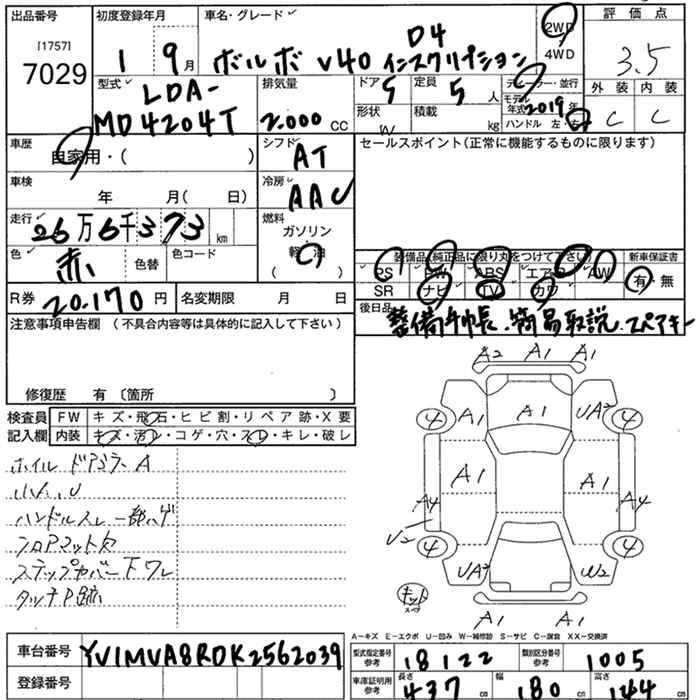 出品番号
[1757]
7029
初度登録年月
1 9月
車名・グレード
D4
ボルボ V40 インスクリプション
2WD
4WD
評価点
3.5
外装 内装
C C
型式
LDA-
MD4204T
排気量
2.000 CC
ドア 5
定員 5人
形状 W
積載 kg
ディーラー・並行
モデル年式 2019年
ハンドル 左・右
車歴
自家用・( )
シフト
AT
セールスポイント(正常に機能するものに限ります)
車検
年 月( 日)
冷房
AAC
走行
26万6千373 km
燃料
ガソリン
軽・油
( )
色
赤
色替
色コード
装備品(純正品に限り丸をつけて下さい)
PS PW ABS エアB AW
SR ナビ TV カワ
新車保証書
有・無
R券 20.170円
名変期限 月 日
後日品
整備手帳、簡易取説、スペアキー
注意事項申告欄 (不具合内容等は具体的に記入して下さい)
修復歴 有 〔箇所 〕
検査員
記入欄
FW キズ・飛石・ヒビ割・リペア跡・X要
内装 キズ・汚レ・コゲ・穴・スレ・キレ・破レ
ホイル ドアミラーA
小A、U
ハンドルスレ 一部ハゲ
フロアマット欠
ステップカバー下ワレ
タッチP跡
A2 A1 A1
4 A1 A1 UA2 4
A1 A1
A4 A4
U2
4 4
UA2 W2
キット
スペア
A1 A1
A-キズ E-エクボ U-凹み W-補修跡 S-サビ C-腐食 XX-交換済
車台番号 YV1MVA8RDK2562039
登録番号
型式指定番号
参考
18122
類別区分番号
参考
1005
車庫証明用
参考
長さ 437 cm
幅 180 cm
高さ 144 cm